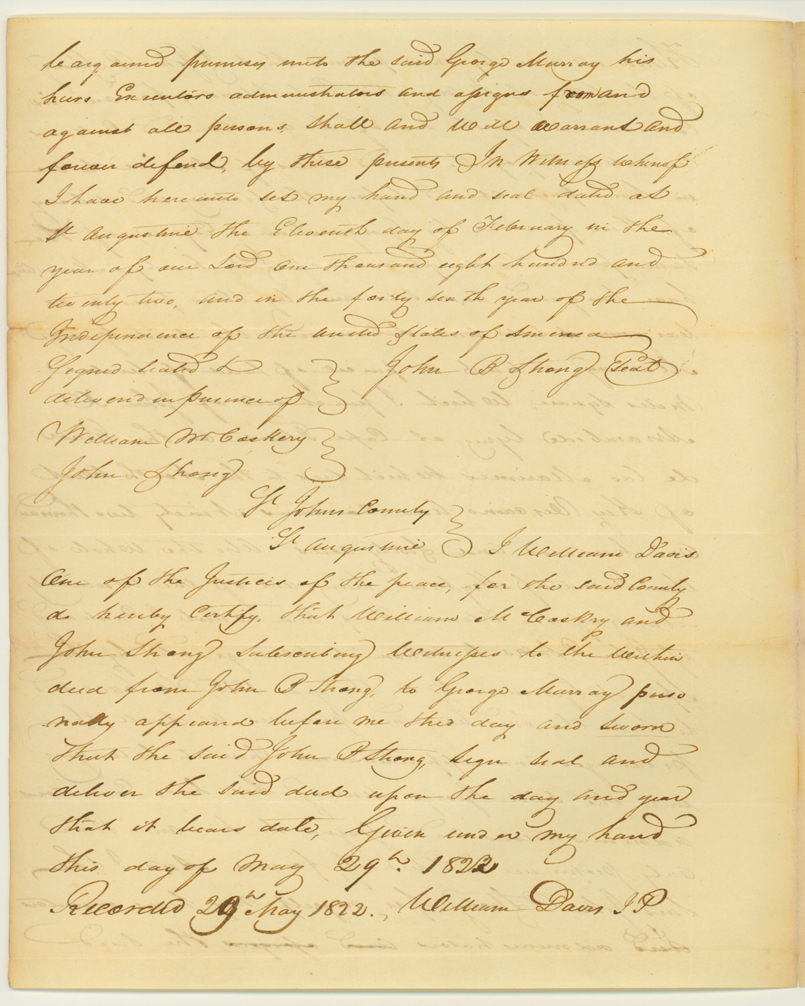 bargained premises unto the said George Murray his
heirs Executors administrators and assigns from and
against all persons shall and will warrant and
forever defend, by these presents In Witness whereof
I have here unto set my hand and seal dated at
St Augustine the Eleventh day of February in the
year of our Lord one thousand eight hundred and
twenty two, and in the forty sixth year of the
Independence of the United States of America
Signed sealed & John B Strong Seal
delivered in presence of
William McCaskery
John Strong
St Johns County
St Augustine I William Davis
One of the Justices of the peace, for the said County
do hereby Certify, that William McCaskry and
John Strong Subscribing Witnesses to the within
deed from John B Strong, to George Murray perso
nally appeared before me this day and sworn
that the said John B Strong, sign seal and
deliver the said deed upon the day and year
that it bears date, Given under my hand
this day of May 29th. 1822
Recorded 29th May 1822., William Davis J P